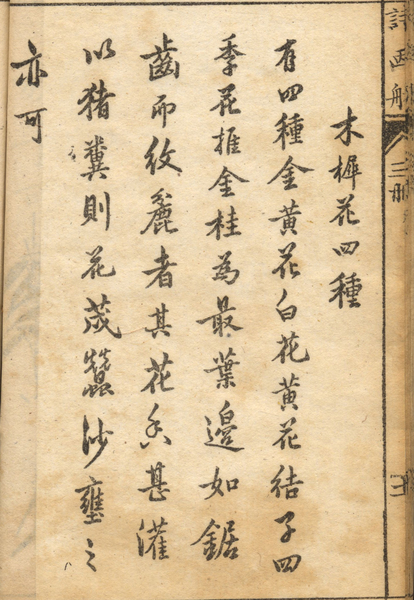 詩画舫
三册
木樨花四種
有四種金黄花白花黄花结子四
季花推金桂為最葉邊如鋸
齒而纹麄者其花香甚灌
以猪糞則花茂蠶沙壅之
亦可